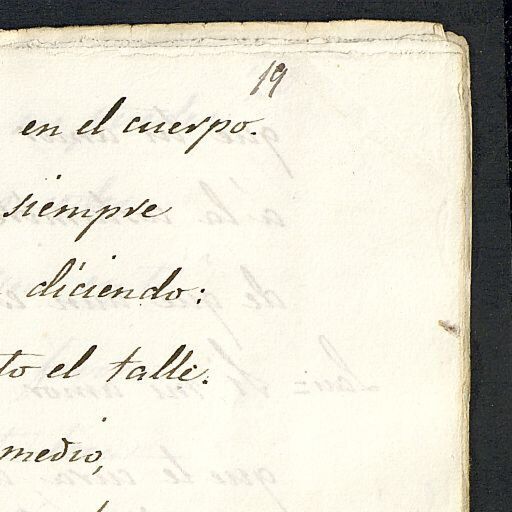 19
en el cuerpo.
siempre
diciendo:
to el talle.
medio,